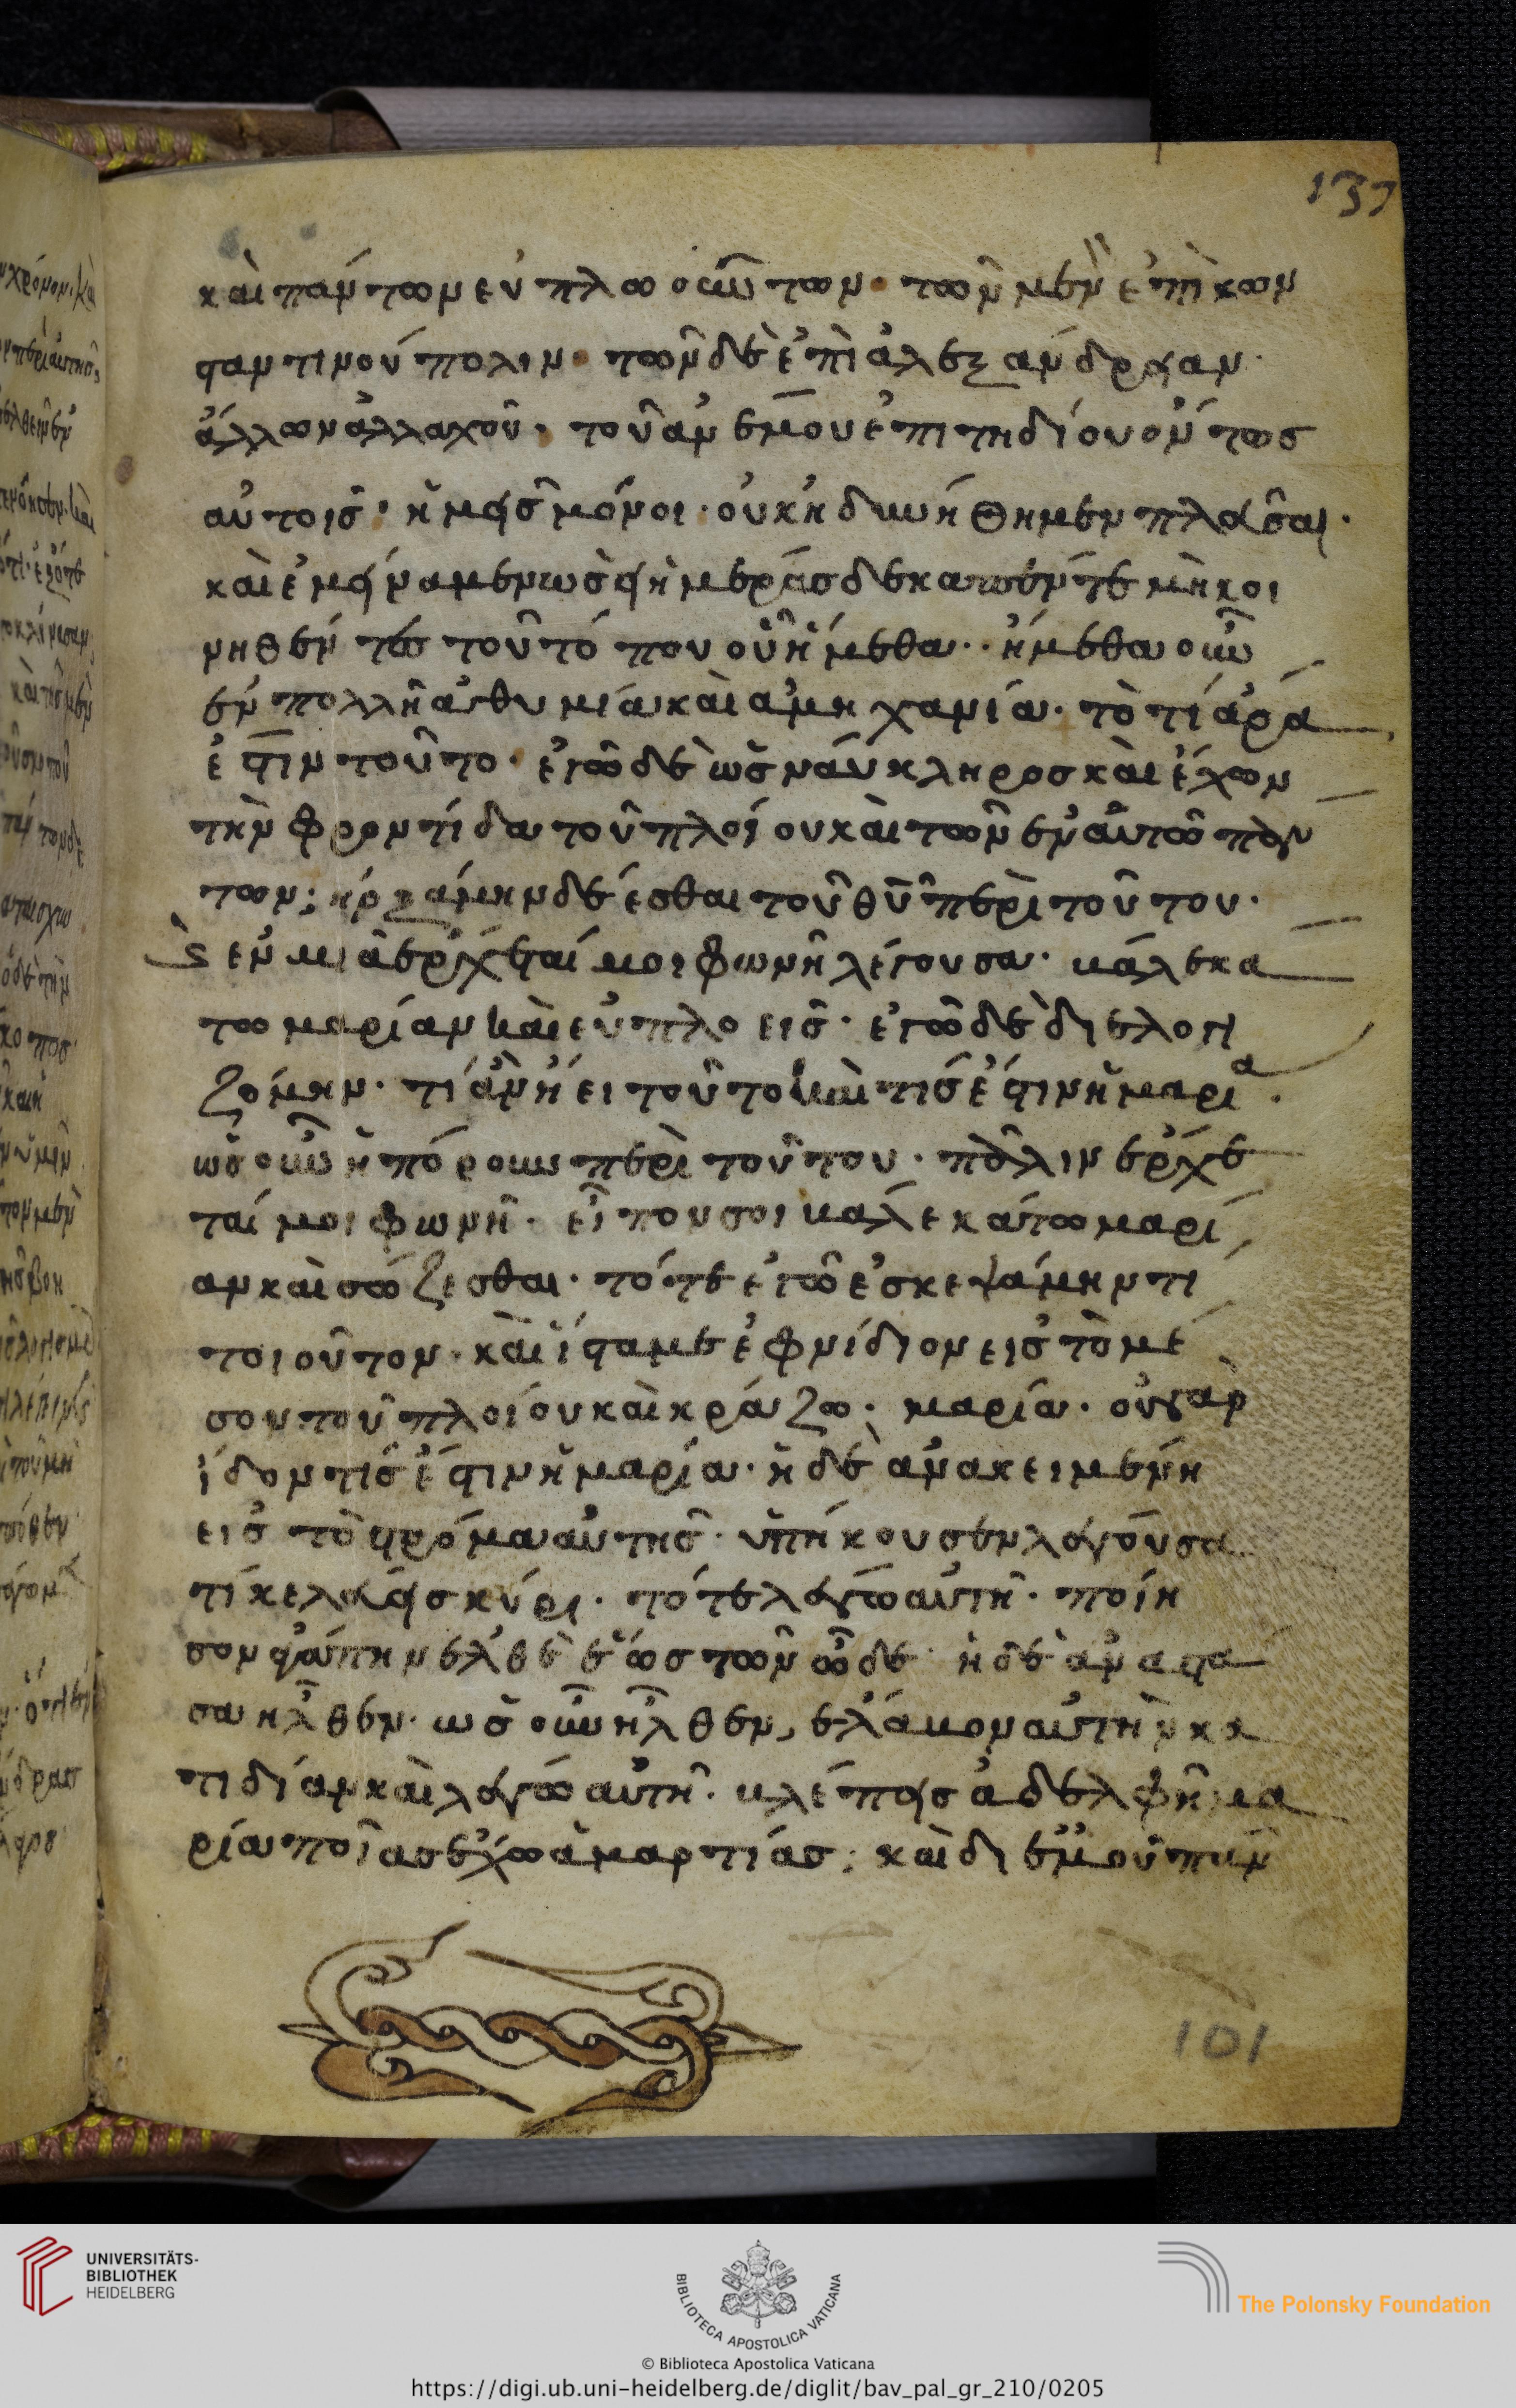 137
καὶ πάντων εὐπλωούντων· τῶν μὲν ἐπὶ κων
σταντινούπολιν· τῶν δὲ ἐπὶ ἀλεξάνδρειαν·
ἄλλων ἀλλαχοῦ· τοῦ ἀνέμου ἐπιτηδίου ὄντος
αὐτοῖς· ἡμεῖς μόνοι· οὐκ ἠδυνήθημεν πλεῦσαι·
καὶ ἐμείναμεν ὡσεὶ ἡμέρας δεκαπέντε μὴ κοι
νηθέντες τοῦ τόπου οὗ ἤμεθα· ἤμεθα οὖν
ἐν πολλῆ ἀθυμία καὶ ἀμηχανία· τὸ τί ἄρα
ἐστὶν τοῦτο· ἐγὼ δὲ ὡς ναύκληρος καὶ ἔχων
τὴν φροντίδα τοῦ πλοίου καὶ τῶν ἐν αὐτῶ πάν
των; ἠρξάμην δέεσθαι τοῦ θῦ περὶ τούτου·
ἐν μιᾶ ἔρχεταί μοι φωνὴ λέγουσα· βάλε κά
τω μαρίαν καὶ εὐπλοεῖς· ἐγὼ δὲ διελογι
ζόμην· τί ἂν ἤει τοῦτο καὶ τίς ἐστιν ἡ μαρία·
ὡς οὖν ἠπόρουν περὶ τούτου· πάλιν ἔρχε
ταί μοι φωνή· εἶπον σοι βάλε κάτω μαρί
αν καὶ σώζεσθαι· τότε ἐγὼ ἐσκεψάμην τι
τοιοῦτον· καὶ ἵσταμε ἐφνίδιον εἰς τὸ μέ
σον τοῦ πλοίου καὶ κράζω· μαρία· οὐ γὰρ
ἴδον τίς ἐστιν ἡ μαρία· ἡ δὲ ἀνακειμένη
εἰς τὸ στρόμα αὐτῆς· ὑπήκουσεν λέγουσα
τί κελεύεις κύρι· τότε λέγω αὐτῆ· ποίη
σον ἀγάπην ἐλθὲ ἕως τῶν ὧδε· ἡ δὲ ἀναστᾶ
σα ἦλθεν· ὡς οὖν ἦλθεν, ἔλαβον αὐτὴν κα
τιδίαν καὶ λέγω αὐτῆ· βλέπεις ἀδελφὴ μα
ρία ποίας ἔχω ἁμαρτίας; καὶ δι ἐμοῦ πάν
101
UNIVERSITÄTS-
BIBLIOTHEK
HEIDELBERG
BIBLIOTECA APOSTOLICA VATICANA
The Polonsky Foundation
© Biblioteca Apostolica Vaticana
https://digi.ub.uni-heidelberg.de/diglit/bav_pal_gr_210/0205